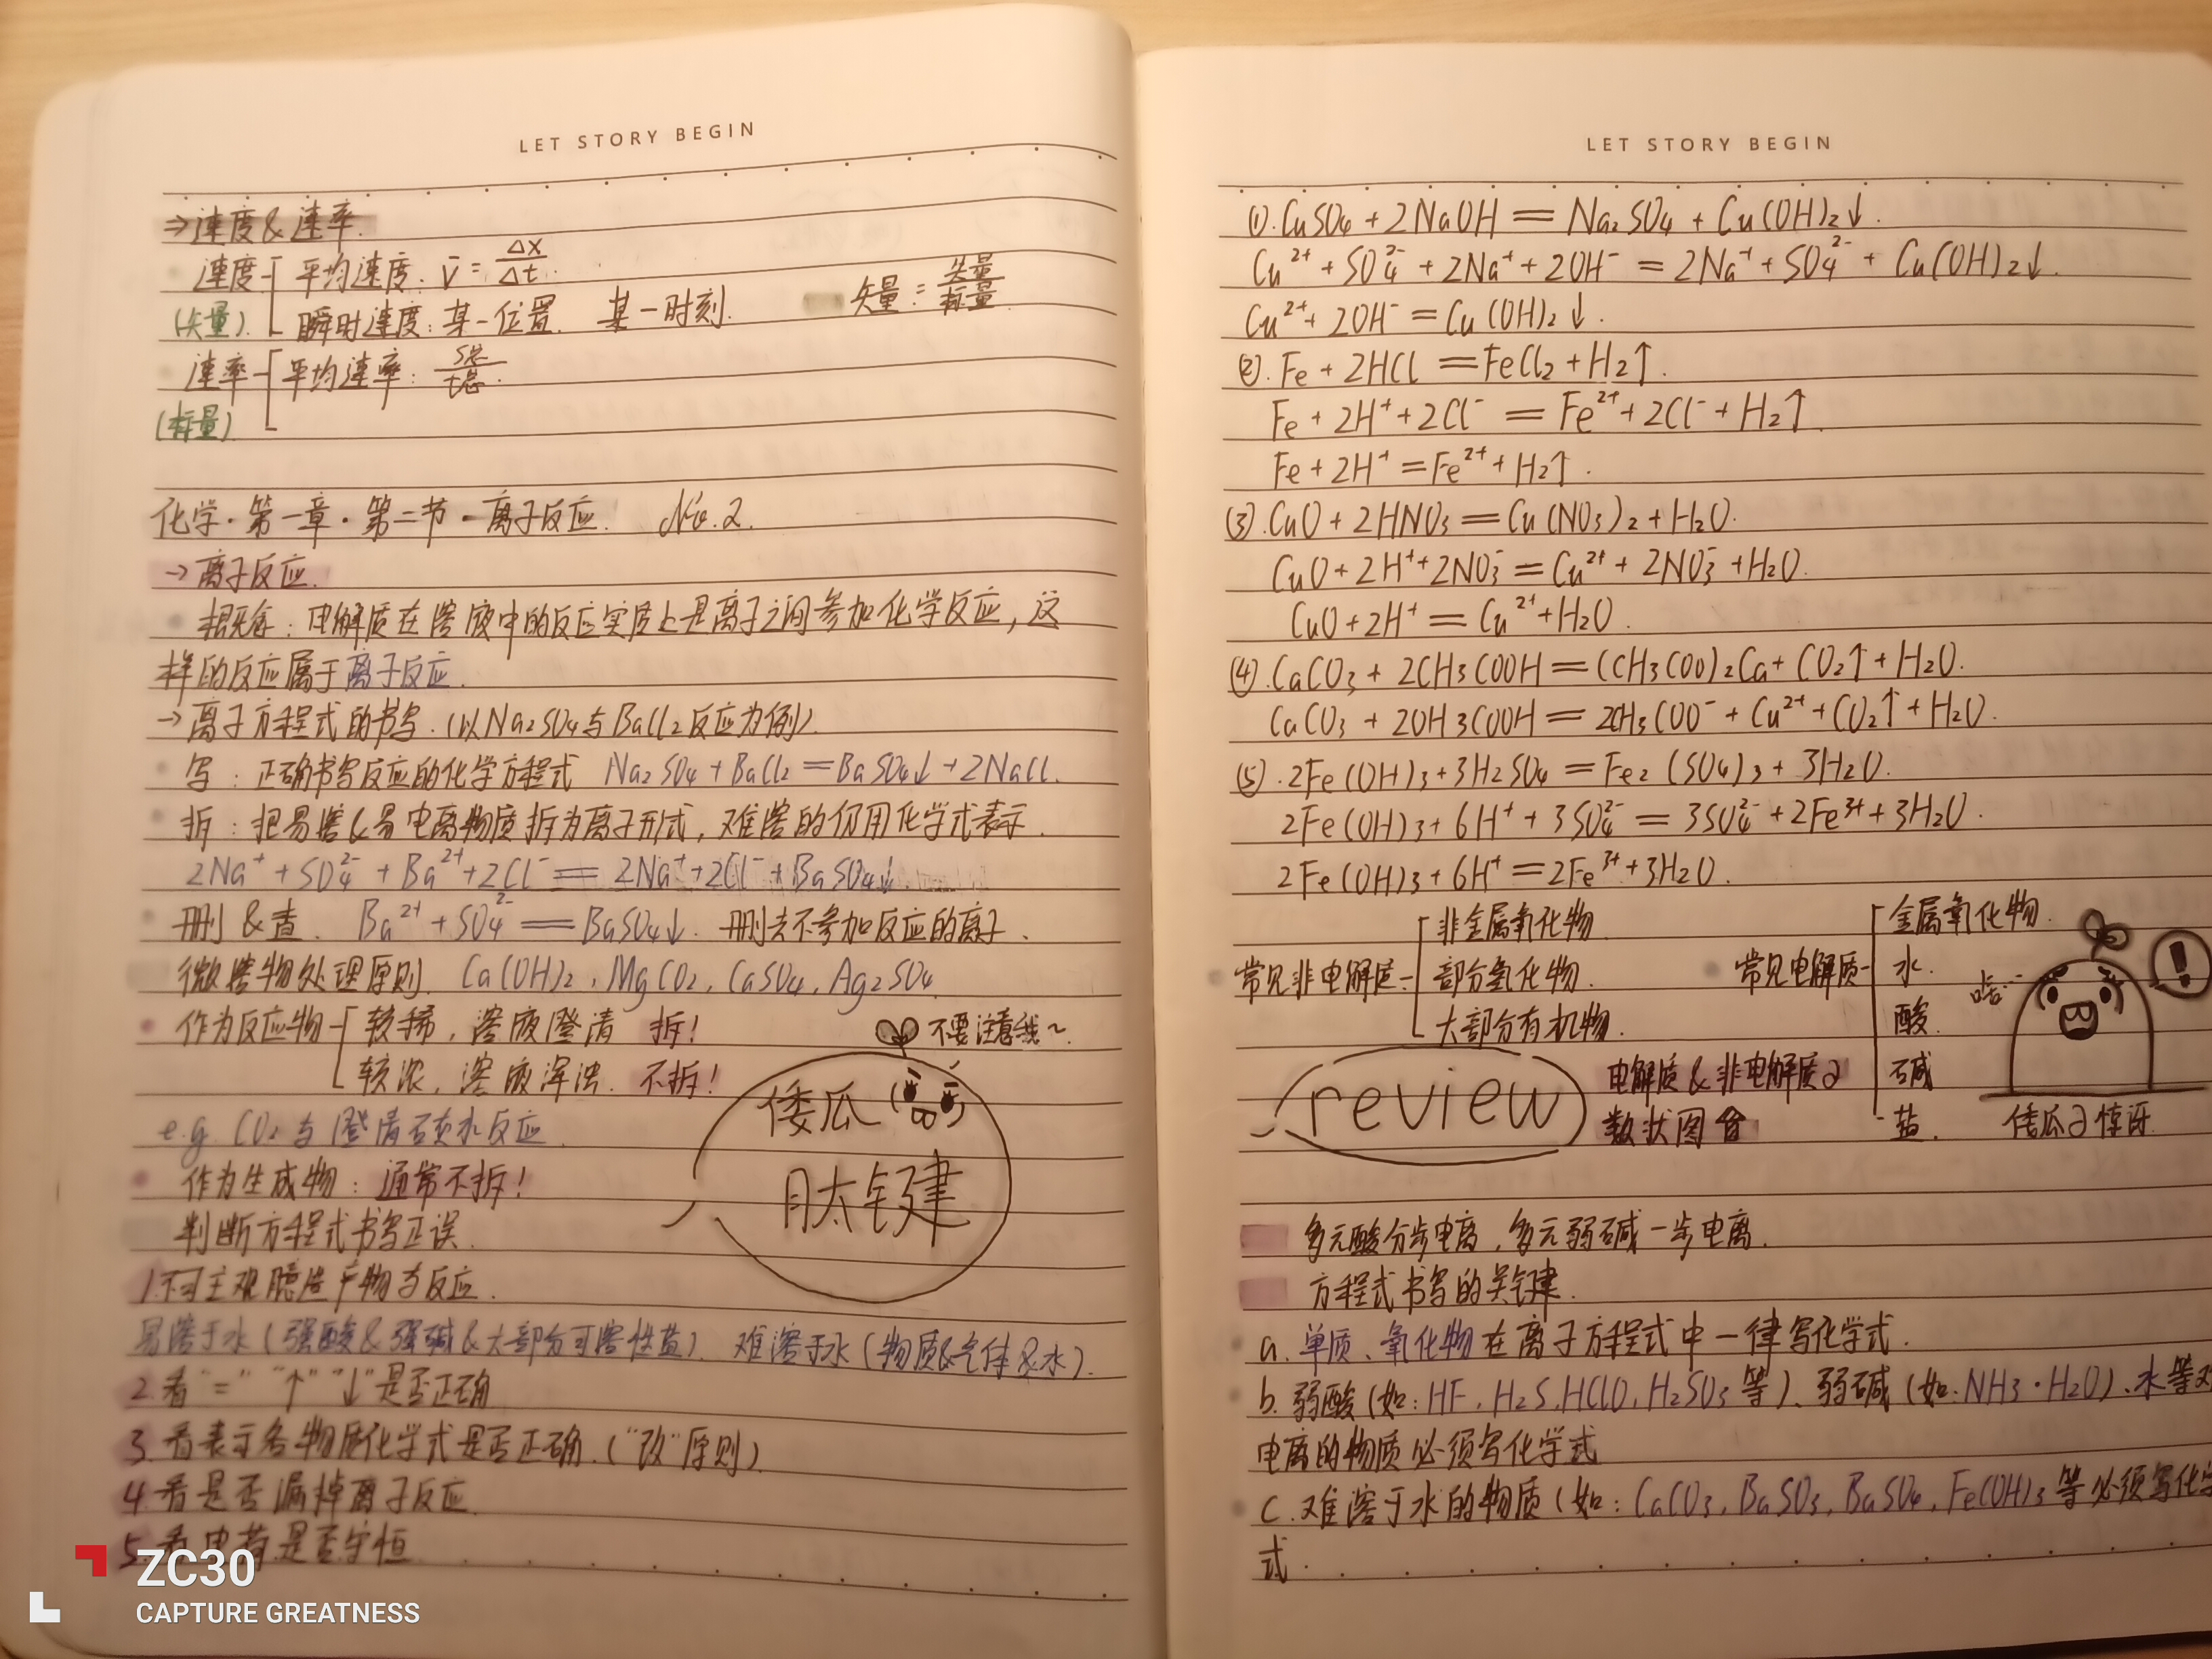 LET STORY BEGIN
→速度&速率.
速度 平均速度: v̄ = Δx/Δt.
(矢量). 瞬时速度: 某一位置. 某一时刻. 矢量 = 矢量/标量
速率 平均速率: S总/t总.
(标量)
化学·第一章·第二节·离子反应. No.2.
→离子反应.
概念: 电解质在溶液中的反应实质上是离子之间参加化学反应, 这
样的反应属于离子反应.
→离子方程式的书写.(以Na₂SO₄与BaCl₂反应为例).
写: 正确书写反应的化学方程式 Na₂SO₄+BaCl₂=BaSO₄↓+2NaCl.
拆: 把易溶&易电离物质拆为离子形式, 难溶的仍用化学式表示.
2Na⁺+SO₄²⁻+Ba²⁺+2Cl⁻=2Na⁺+2Cl⁻+BaSO₄↓.
删&查. Ba²⁺+SO₄²⁻=BaSO₄↓. 删去不参加反应的离子.
微溶物处理原则. Ca(OH)₂, MgCO₂, CaSO₄, Ag₂SO₄.
作为反应物 较稀, 溶液澄清 拆!
较浓, 溶液浑浊. 不拆!
不要注意我~
倭瓜
肽键
e.g. CO₂与澄清石灰水反应.
作为生成物: 通常不拆!
判断方程式书写正误.
1.不可主观臆造产物与反应.
易溶于水(强酸&强碱&大部分可溶性盐). 难溶于水(物质&气体&水).
2.看"=" "↑" "↓"是否正确
3.看表示各物质化学式是否正确.("改"原则)
4.看是否漏掉离子反应.
5.看电荷是否守恒
ZC30
CAPTURE GREATNESS
LET STORY BEGIN
(1).CuSO₄+2NaOH=Na₂SO₄+Cu(OH)₂↓.
Cu²⁺+SO₄²⁻+2Na⁺+2OH⁻=2Na⁺+SO₄²⁻+Cu(OH)₂↓.
Cu²⁺+2OH⁻=Cu(OH)₂↓.
(2).Fe+2HCl=FeCl₂+H₂↑.
Fe+2H⁺+2Cl⁻=Fe²⁺+2Cl⁻+H₂↑.
Fe+2H⁺=Fe²⁺+H₂↑.
(3).CuO+2HNO₃=Cu(NO₃)₂+H₂O.
CuO+2H⁺+2NO₃⁻=Cu²⁺+2NO₃⁻+H₂O.
CuO+2H⁺=Cu²⁺+H₂O.
(4).CaCO₃+2CH₃COOH=(CH₃COO)₂Ca+CO₂↑+H₂O.
CaCO₃+2OH₃COOH=2CH₃COO⁻+Cu²⁺+CO₂↑+H₂O.
(5).2Fe(OH)₃+3H₂SO₄=Fe₂(SO₄)₃+3H₂O.
2Fe(OH)₃+6H⁺+3SO₄²⁻=3SO₄²⁻+2Fe³⁺+3H₂O.
2Fe(OH)₃+6H⁺=2Fe³⁺+3H₂O.
常见非电解质: 非金属氧化物.
部分氢化物.
大部分有机物.
常见电解质 金属氧化物.
水.
酸.
碱
盐.
啥…
!
倭瓜の惊讶
review
电解质&非电解质の
数状图
多元酸分步电离, 多元弱碱一步电离.
方程式书写的关键.
a. 单质、氧化物在离子方程式中一律写化学式.
b. 弱酸(如: HF, H₂S, HClO, H₂SO₃等)、弱碱(如: NH₃·H₂O)、水等
电离的物质必须写化学式
c. 难溶于水的物质(如: CaCO₃, BaSO₃, BaSO₄, Fe(OH)₃等必须写化学
式.